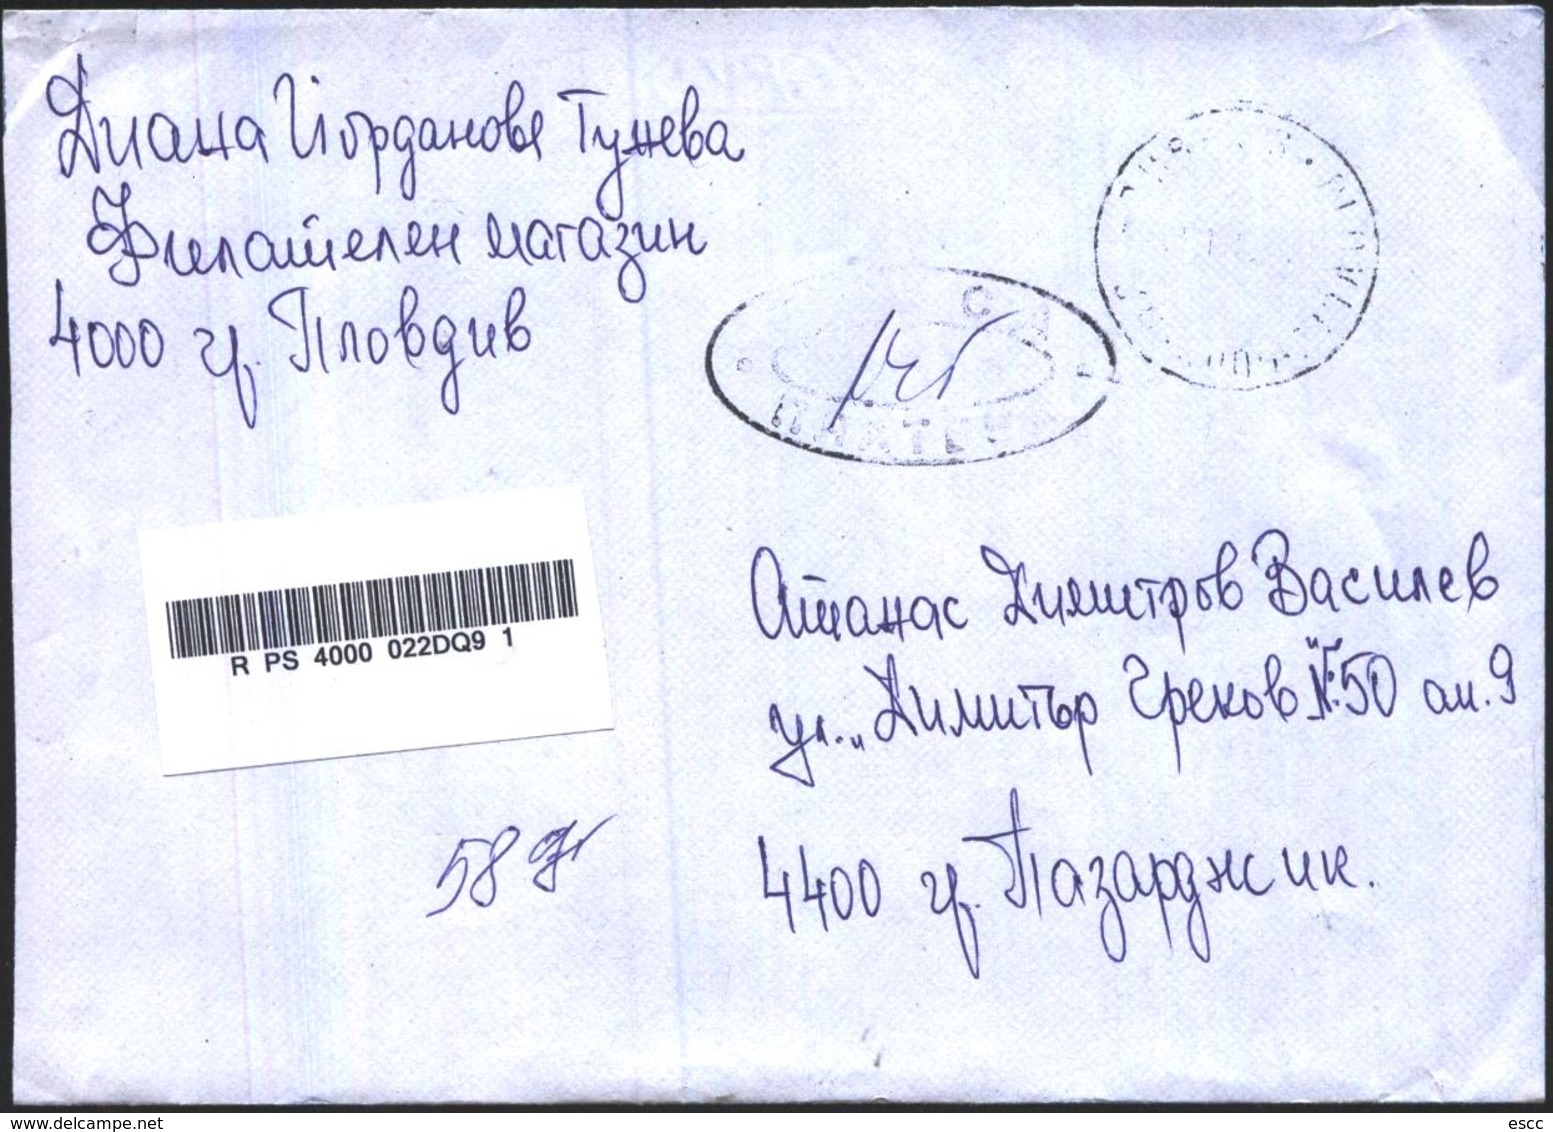 Диана Йорданова Тунева
Филателен магазин
4000 гр. Пловдив
R PS 4000 022DQ9 1
58 gr
Атанас Димитров Василев
ул. „Димитър Греков" №50 ап. 9
4400 гр. Пазарджик.
delcampe.net
escc